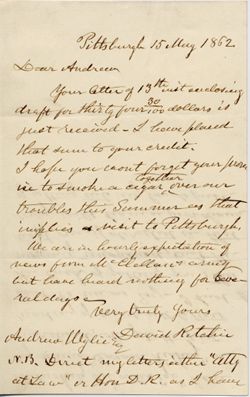 Pittsburgh 15 May 1862
Dear Andrew
Your letter of 13th inst enclosing
draft for thirty four 30/100 dollars is
just received - I have placed
that sum to your credit.
I hope you wont forget your prom
ise to smoke a cigar together over our
troubles this Summer as that
implies a visit to Pittsburgh.
We are in hourly expectation of
news from McClellan's army
but have heard nothing for seve
ral days -
Very truly Yours
David Ritchie
Andrew Wylie Esq
N.B. Direct my letters either "Atty
at Law" or Hon D. R. as I have